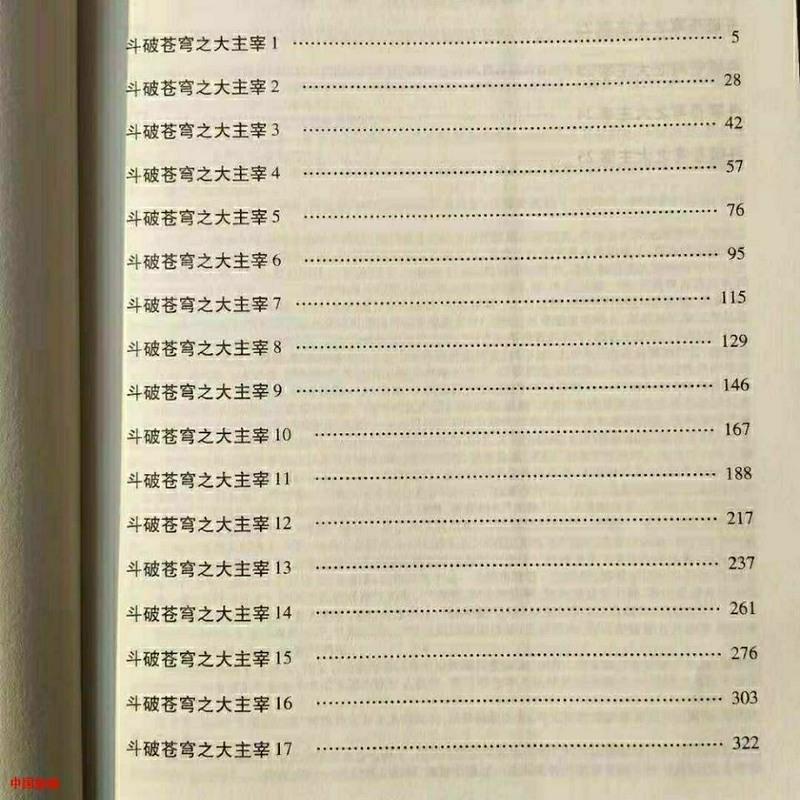 斗破苍穹之大主宰 1 …………………………………… 5
斗破苍穹之大主宰 2 …………………………………… 28
斗破苍穹之大主宰 3 …………………………………… 42
斗破苍穹之大主宰 4 …………………………………… 57
斗破苍穹之大主宰 5 …………………………………… 76
斗破苍穹之大主宰 6 …………………………………… 95
斗破苍穹之大主宰 7 …………………………………… 115
斗破苍穹之大主宰 8 …………………………………… 129
斗破苍穹之大主宰 9 …………………………………… 146
斗破苍穹之大主宰 10 …………………………………… 167
斗破苍穹之大主宰 11 …………………………………… 188
斗破苍穹之大主宰 12 …………………………………… 217
斗破苍穹之大主宰 13 …………………………………… 237
斗破苍穹之大主宰 14 …………………………………… 261
斗破苍穹之大主宰 15 …………………………………… 276
斗破苍穹之大主宰 16 …………………………………… 303
斗破苍穹之大主宰 17 …………………………………… 322
中国